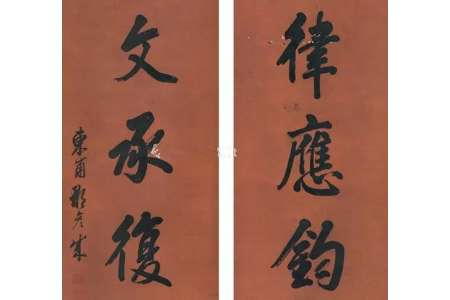 律應鈞
文承復
東甫彭彥